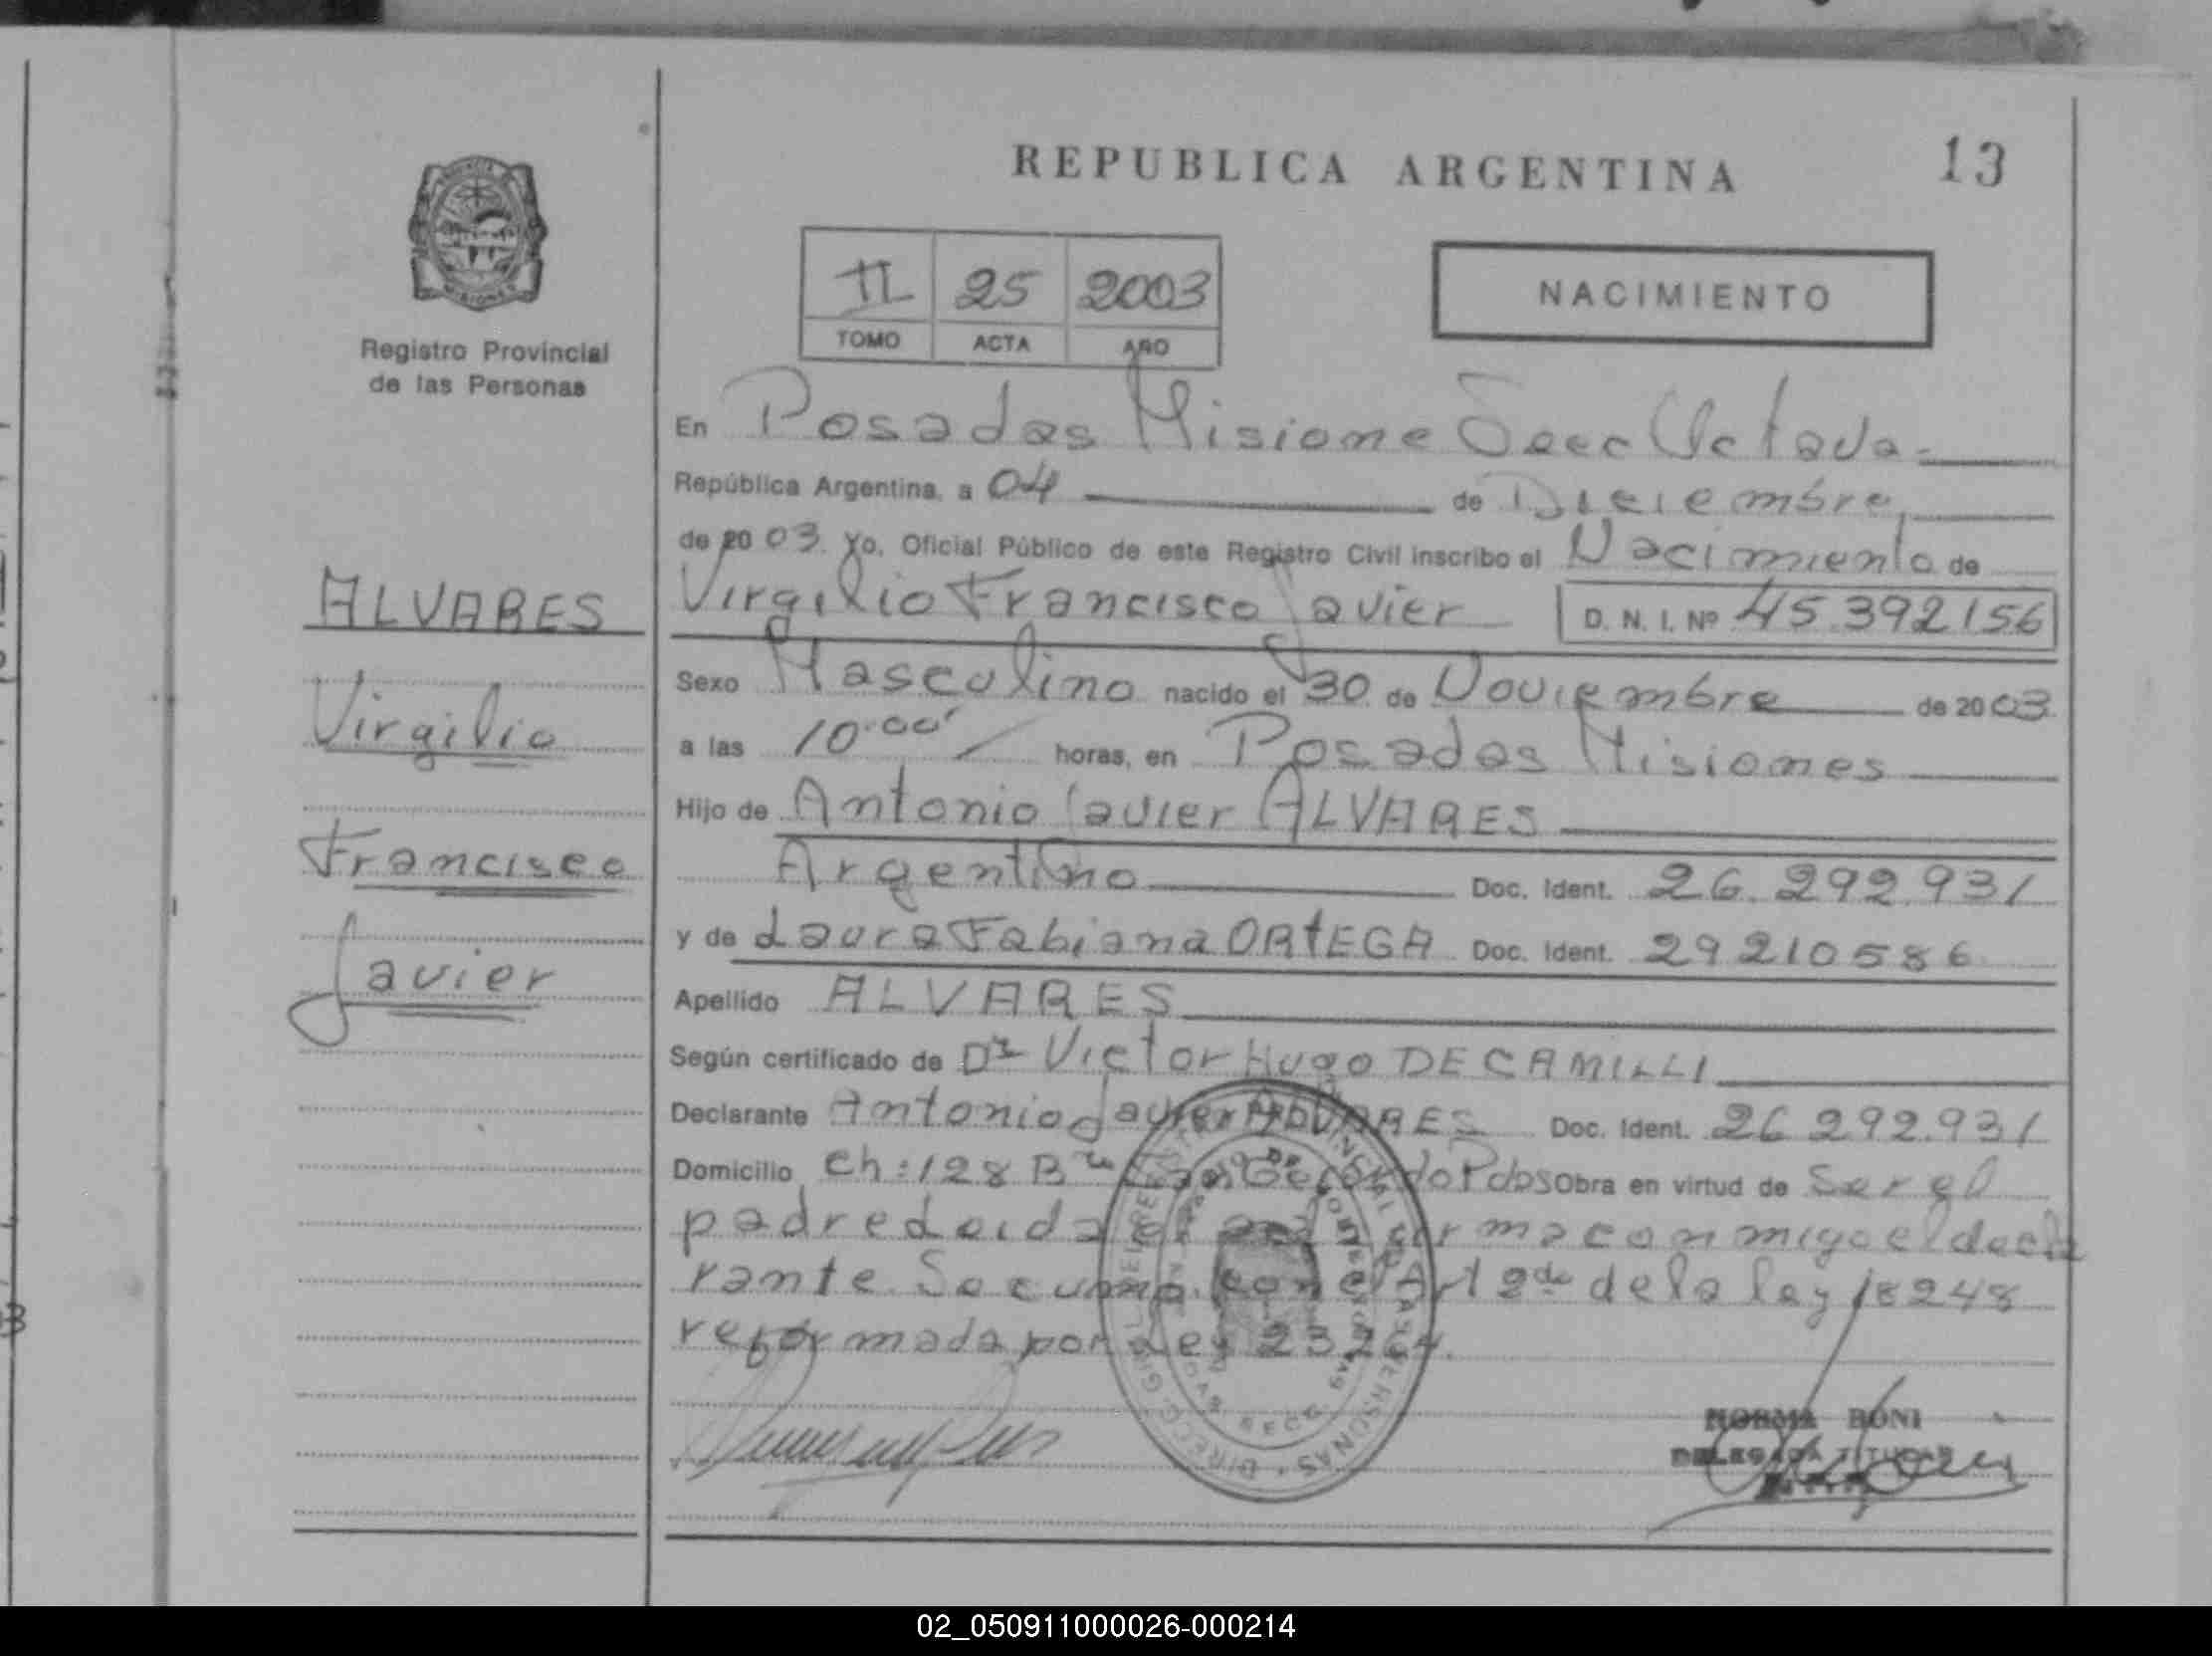 REPUBLICA ARGENTINA 13
II 25 2003
TOMO ACTA AÑO
NACIMIENTO
Registro Provincial
de las Personas
ALVARES
Virgilio
Francisco
Javier
En Posadas Misione Secc Octava
República Argentina, a 04 de Diciembre
de 2003. Yo, Oficial Público de este Registro Civil inscribo el Nacimiento de
Virgilio Francisco Javier D. N. I. Nº 45.392156
Sexo Masculino nacido el 30 de Noviembre de 2003
a las 10:00 horas, en Posadas Misiones
Hijo de Antonio Javier ALVARES
Argentino Doc. Ident. 26.292.931
y de Laura Fabiana ORTEGA Doc. Ident. 29210586
Apellido ALVARES
Según certificado de Dr Victor Hugo DECAMILLI
Declarante Antonio Javier ALVARES Doc. Ident. 26 292.931
Domicilio Ch: 128 Pdas Obra en virtud de Ser el
padre Leida el acta firma conmigo el decla
rante Se con el Art 2do de la ley 18248
reformada por Ley 23264.
NORMA BONI
DELEGADA TITULAR
02_050911000026-000214